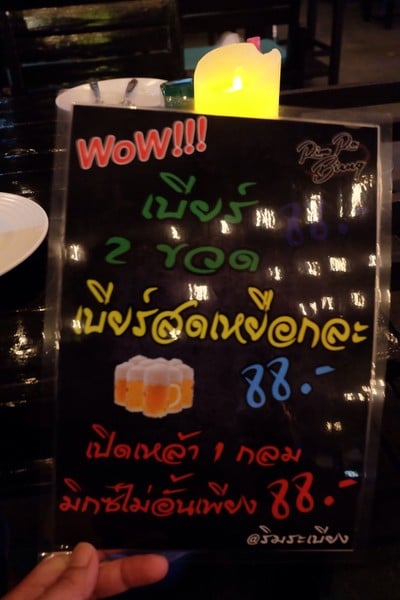 WOW!!!
Rim Ra Bieng
เบียร์
2 ขวด 88.-
เบียร์สดเหยือกละ
88.-
เปิดเหล้า 1 กลม
มิกซ์ไม่อั้นเพียง 88.-
@ริมระเบียง